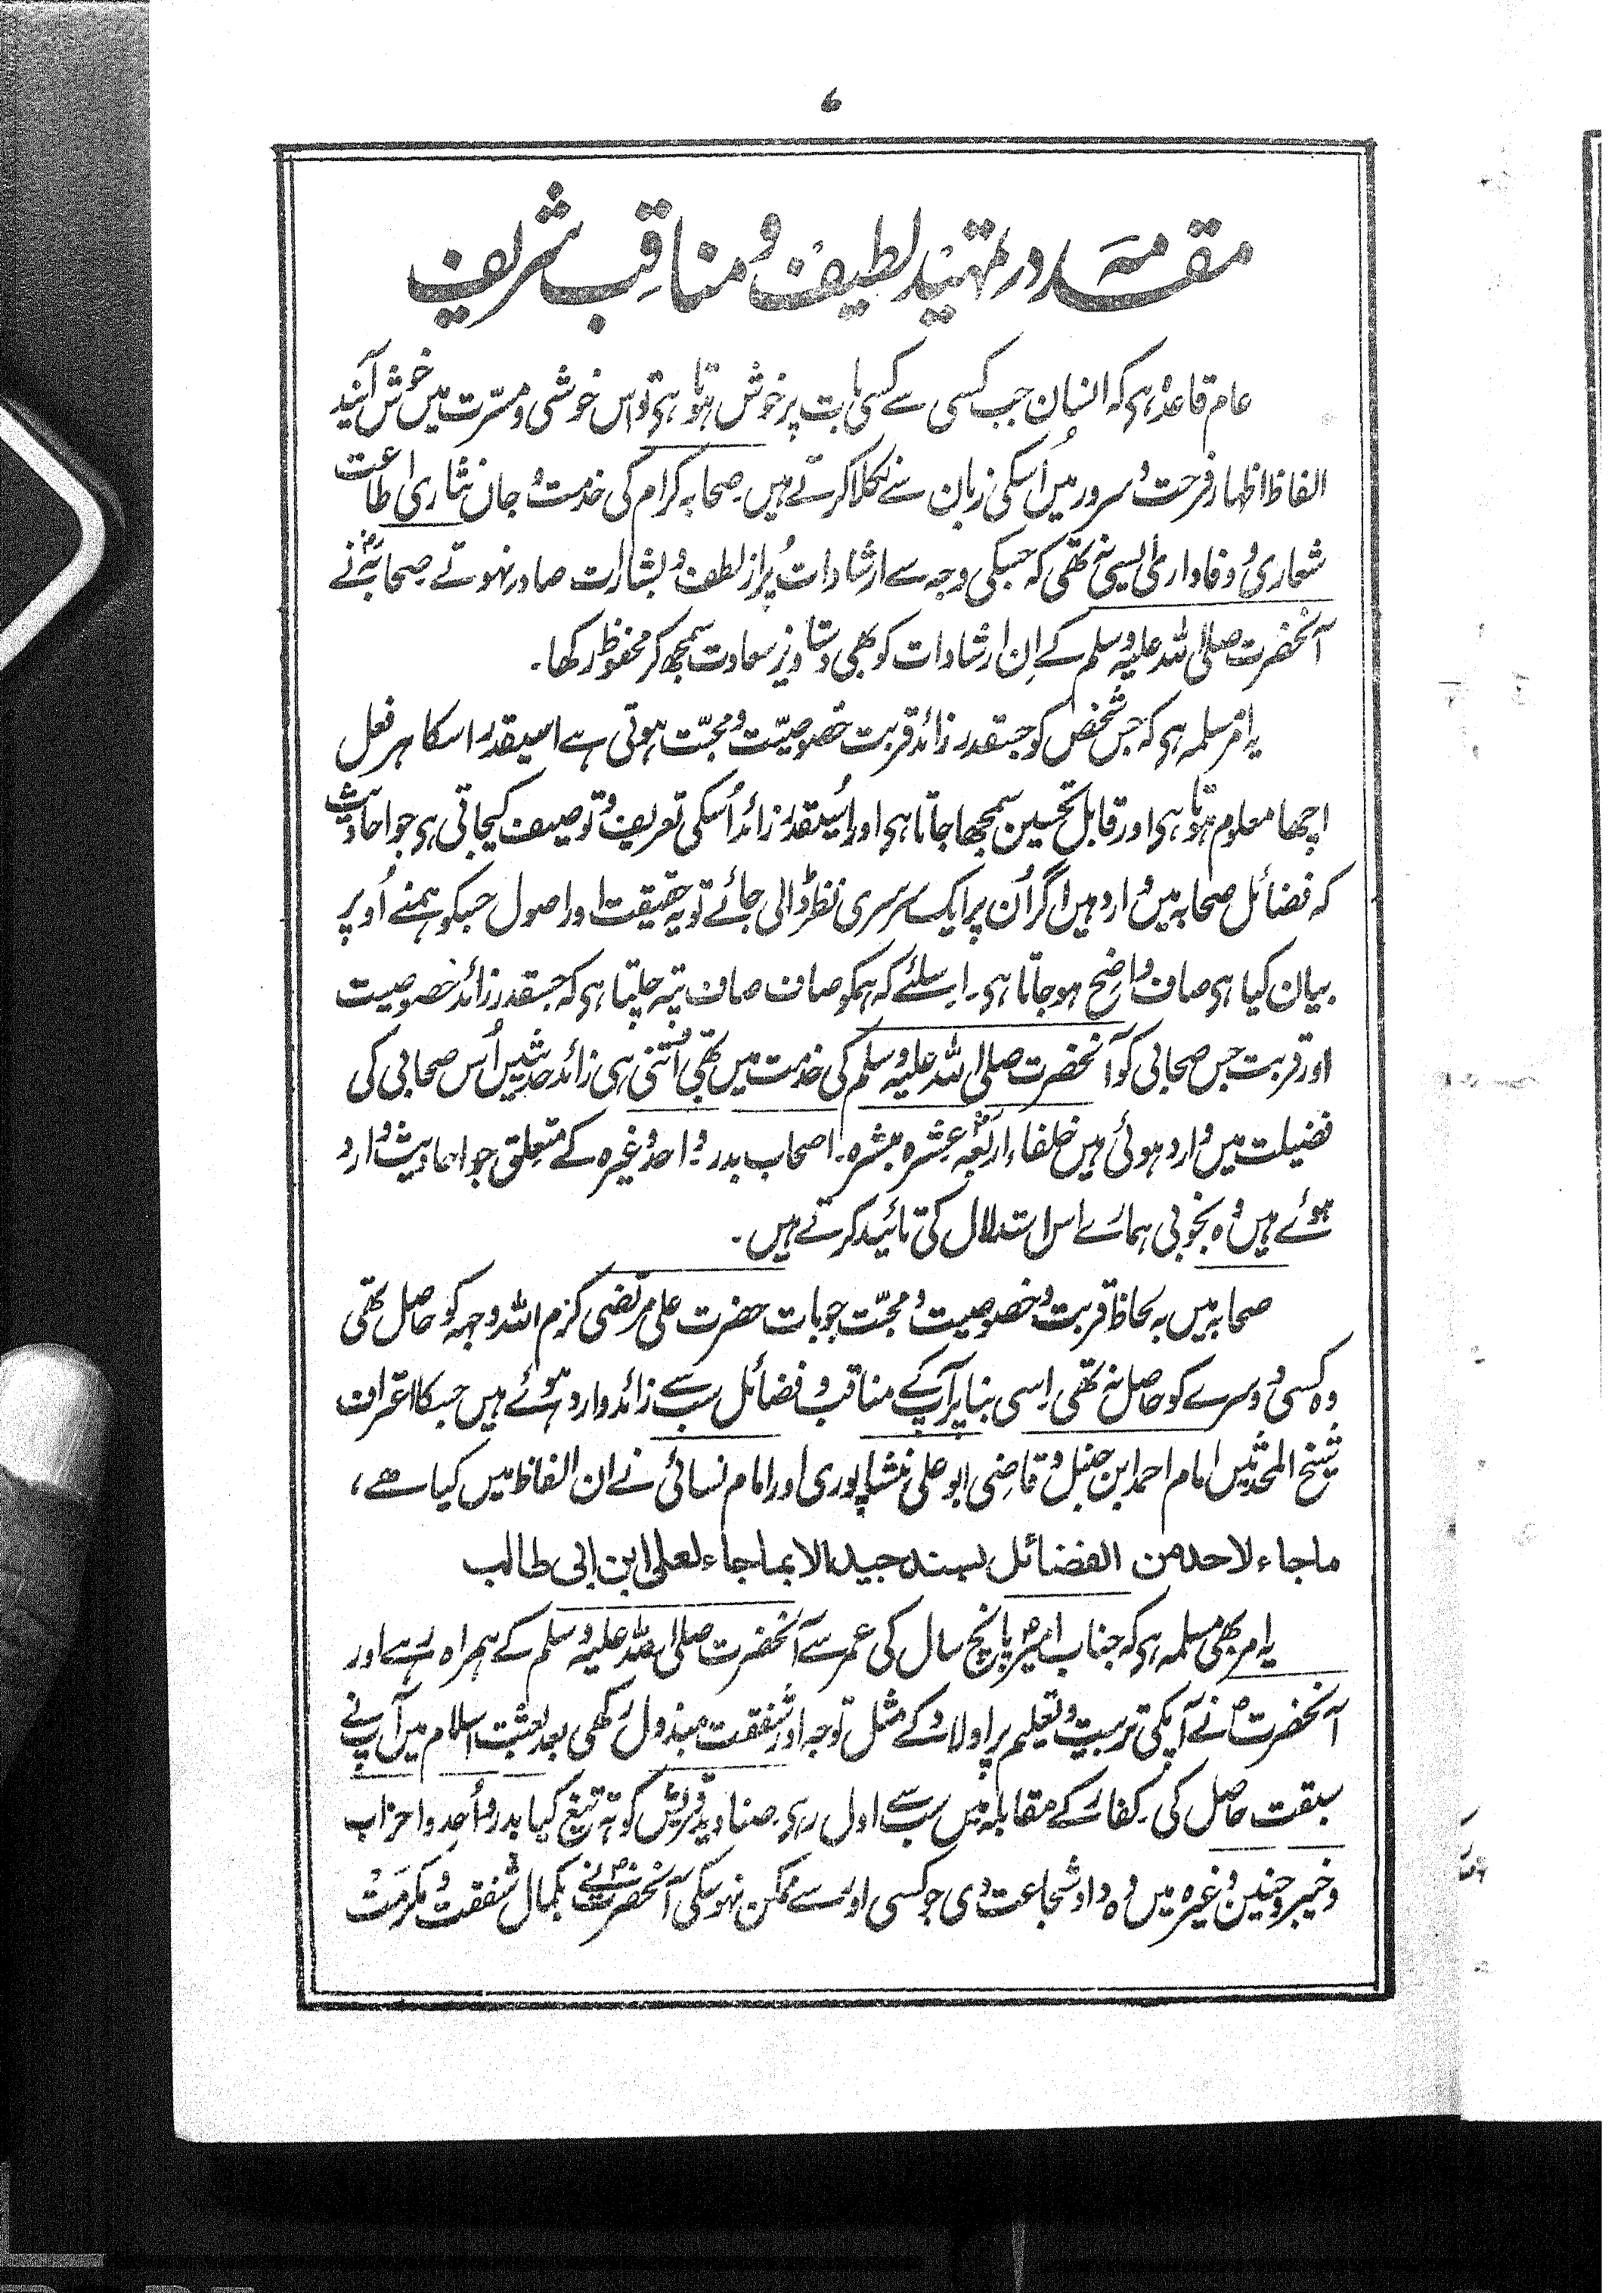 ۶
مقدمہ در تمہید لطیف و مناقب شریف
عام قاعدہ ہی کہ انسان جب کسی سے کسی بات پر خوش ہوتا ہی تو اس خوشی و مسرّت میں خوش آیند
الفاظ اظہار فرحت و سرور میں اُسکی زبان سے نکلا کرتے ہیں۔ صحابہ کرام کی خدمت و جان نثاری اطاعت
شعاری و وفاداری ایسی نہ تھی کہ جسکی وجہ سے ارشادات پُر از لطف و بشارات صادر نہوتے صحابہؓ نے
آنحضرت صلی اللہ علیہ وسلم کے اِن ارشادات کو بھی دستاویز سعادت سمجھ کر محفوظ رکھا۔
یہ امر مسلمہ ہی کہ جس شخص کو جسقدر زائد قربت خصوصیّت و محبّت ہوتی ہے اسیقدر اسکا ہر فعل
اچھا معلوم ہوتا ہی اور قابل تحسین سمجھا جاتا ہی اور اُسیقدر زائد اُسکی تعریف و توصیف کیجاتی ہی جو احادیث
کہ فضائل صحابہ میں وارد ہیں اگر اُن پر ایک سرسری نظر ڈالی جائے تو یہ حقیقت اور اصول جسکو ہمنے اُوپر
بیان کیا ہی صاف واضح ہو جاتا ہی۔ اسلئے کہ ہمکو صاف صاف پتہ چلتا ہی کہ جسقدر زائد خصوصیت
اور قربت جس صحابی کو آنحضرت صلی اللہ علیہ وسلم کی خدمت میں تھی اُتنی ہی زائد حدیثیں اُس صحابی کی
فضیلت میں وارد ہوئی ہیں خلفاء اربعہؓ عشرہ مبشرہ۔ اصحاب بدر و احد وغیرہ کے متعلق جو احادیث وارد
ہوئے ہیں وہ بخوبی ہمارے اس استدلال کی تائید کرتے ہیں۔
صحابہ میں بہ لحاظ قربت و خصوصیت و محبّت جو بات حضرت علی مرتضی کرّم اللہ وجہہ کو حاصل تھی
وہ کسی دوسرے کو حاصل نہ تھی اِسی بنا پر آپ کے مناقب و فضائل سب سے زائد وارد ہوئے ہیں جسکا اعتراف
شیخ المحدثین امام احمد ابن حنبل و قاضی ابو علی نیشاپوری اور امام نسائی نے ان الفاظ میں کیا ہے،
ماجاء لاحد من الفضائل بسند جید الا بما جاء لعلی ابن ابی طالب
یہ امر بھی مسلمہ ہی کہ جناب امیرؓ پانچ سال کی عمر سے آنحضرت صلی اللہ علیہ وسلم کے ہمراہ رہے اور
آنحضرتؐ نے آپکی تربیت و تعلیم پر اولاد کے مثل توجہ اور شفقت مبذول رکھی بعد بعثت اسلام میں آپ نے
سبقت حاصل کی۔ کفار کے مقابلہ میں سب سے اول رہی۔ صنادید قریش کو تہ تیغ کیا بدر و اُحد و احزاب
و خیبر و حنین وغیرہ میں وہ داد شجاعت دی جو کسی اور سے ممکن نہوسکی آنحضرتؐ نے بکمال شفقت و مکرمت